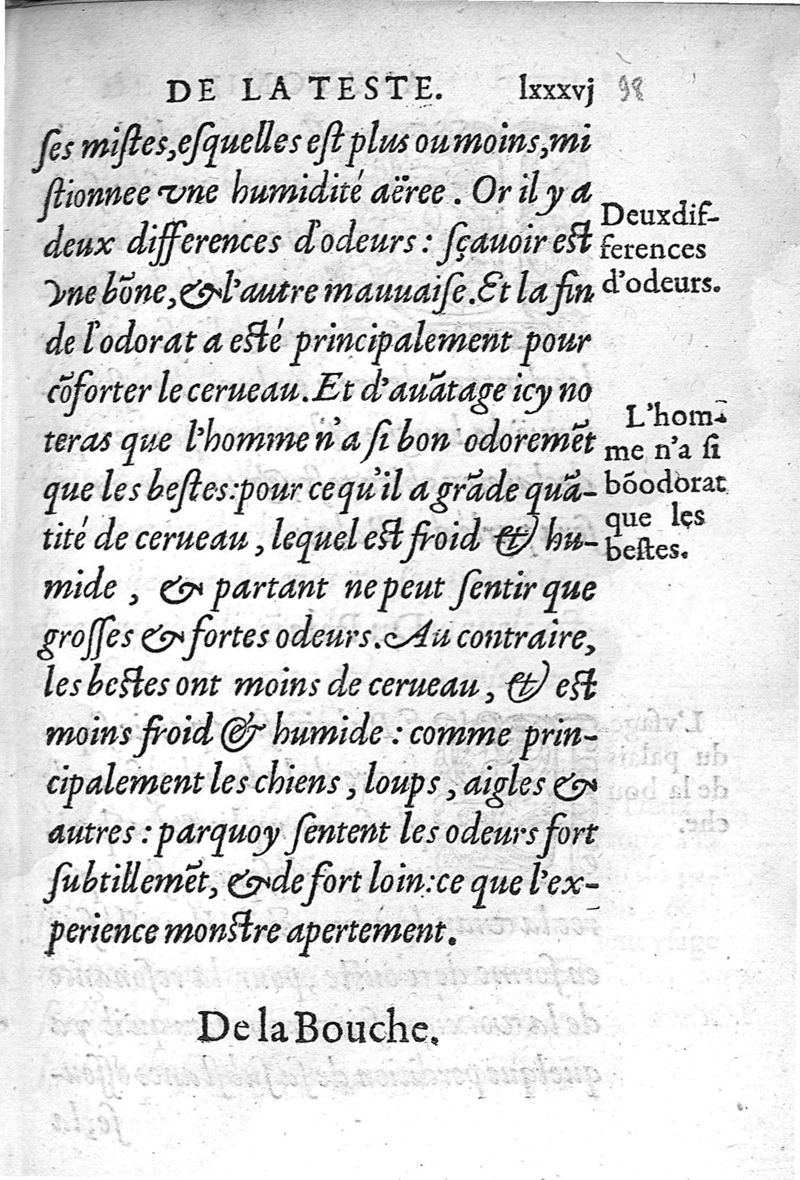 DE LA TESTE. lxxxvj 98
ſes miſtes, eſquelles eſt plus ou moins, mi
ſtionnee vne humidité aëree. Or il y a
deux differences d'odeurs: ſçauoir eſt
vne bõne, & l'autre mauuaiſe. Et la fin
de l'odorat a eſté principalement pour
cõforter le cerueau. Et d'auãtage icy no
teras que l'homme n'a ſi bon odoremẽt
que les beſtes: pour ce qu'il a grãde quã-
tité de cerueau, lequel eſt froid & hu-
mide, & partant ne peut ſentir que
groſſes & fortes odeurs. Au contraire,
les beſtes ont moins de cerueau, & eſt
moins froid & humide: comme prin-
cipalement les chiens, loups, aigles &
autres: parquoy ſentent les odeurs fort
ſubtillemẽt, & de fort loin: ce que l'ex-
perience monſtre apertement.
Deux dif-
ferences
d'odeurs.
L'hom-
me n'a ſi
bõ odorat
que les
beſtes.
De la Bouche.